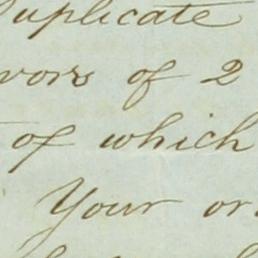 Duplicate
vors of 2
of which
Your or